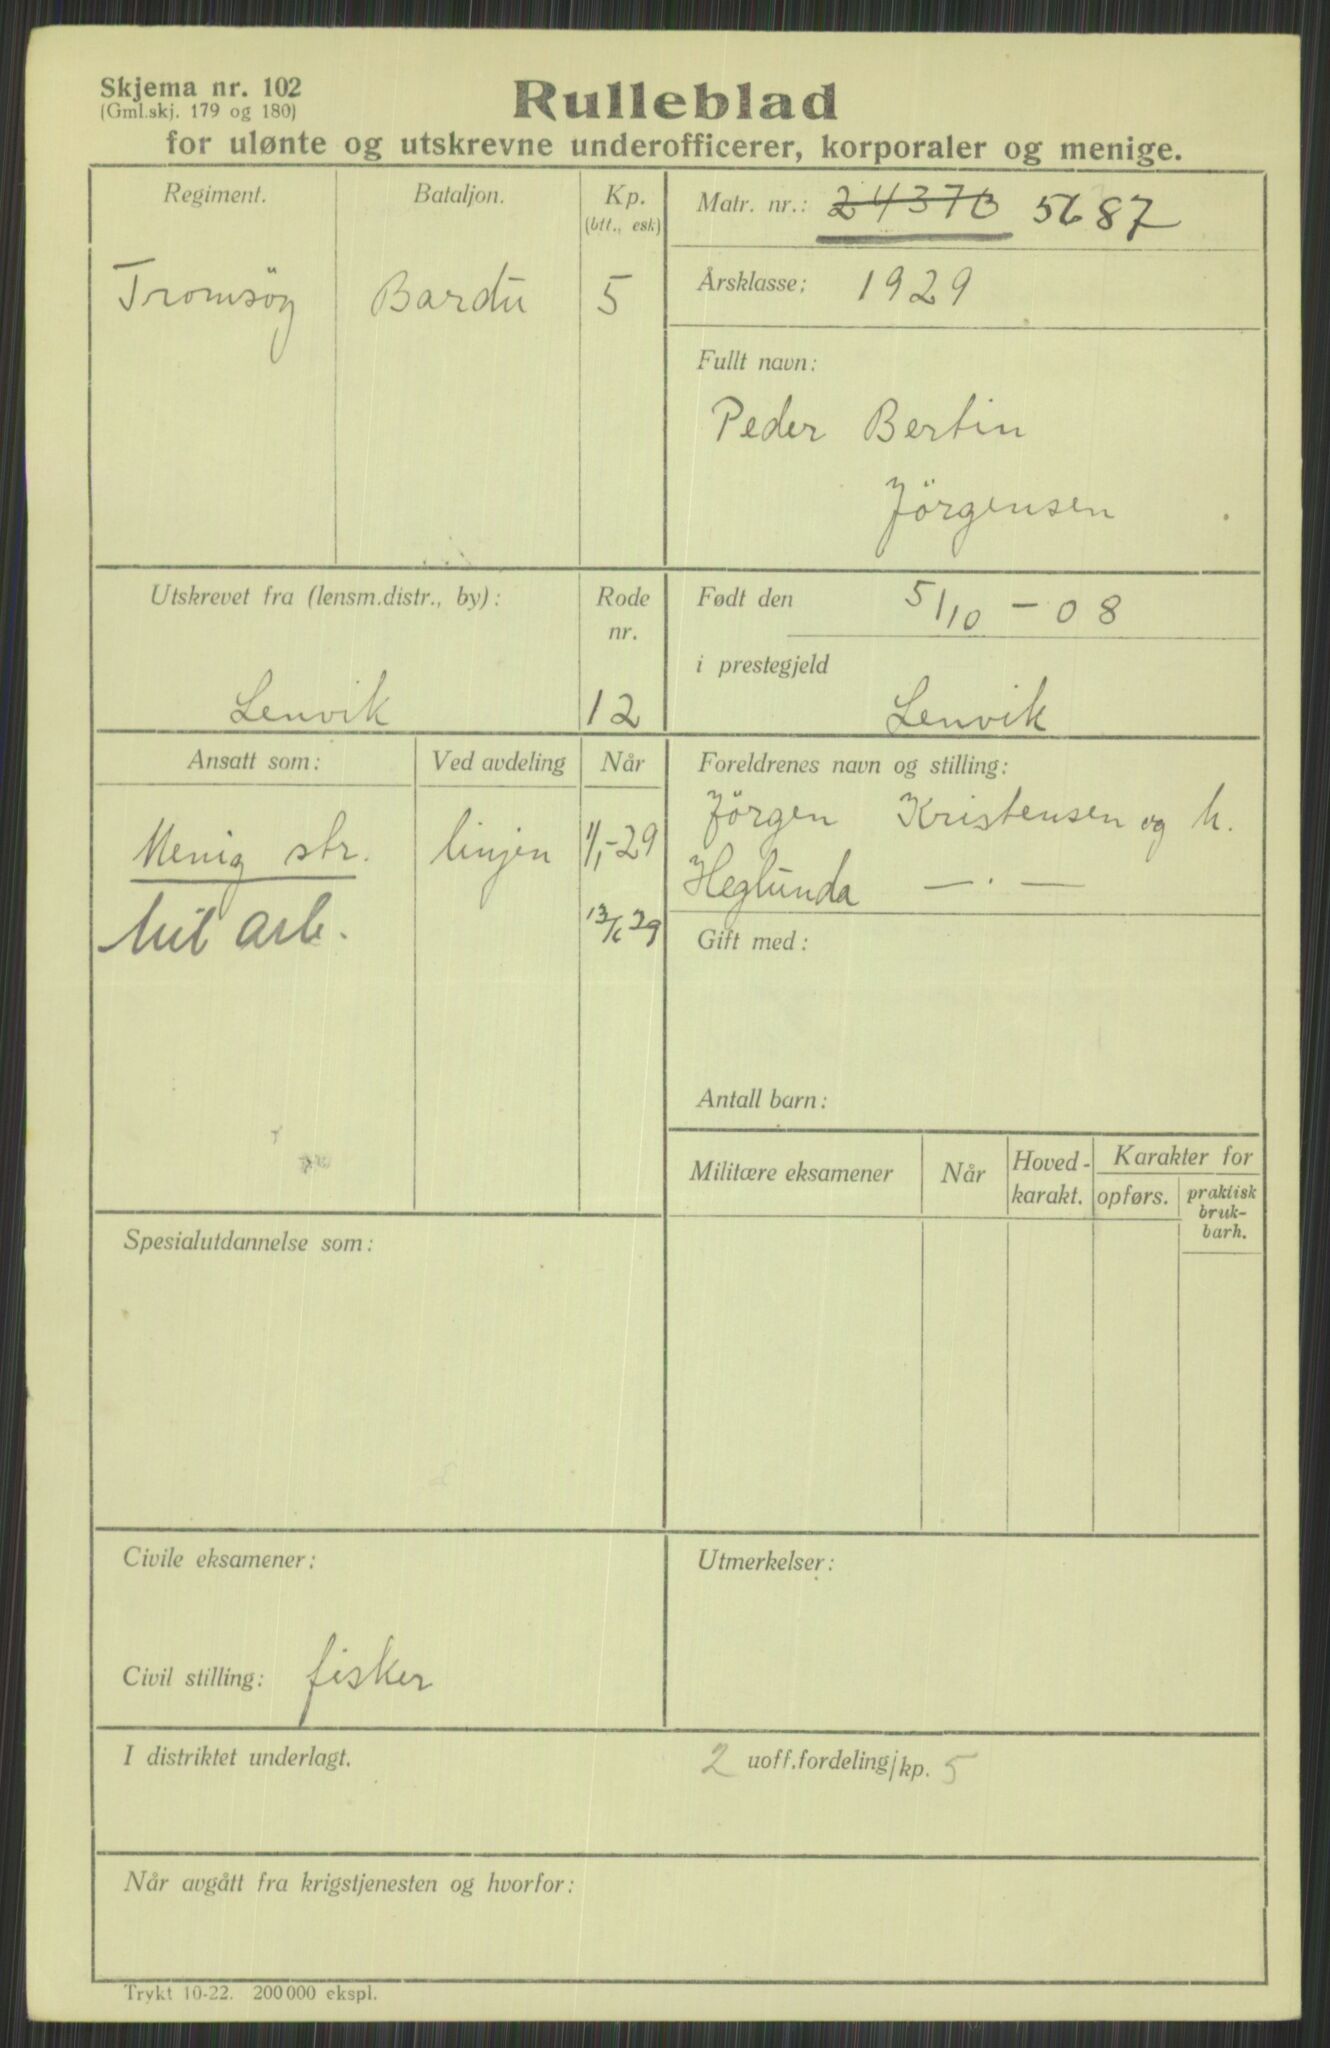 Skjema nr. 102
(Gml.skj. 179 og 180)
Rulleblad
for ulønte og utskrevne underofficerer, korporaler og menige.
Regiment.
Bataljon.
Kp.
(btt., esk)
Tromsøy
Bardu
5
Matr. nr.: 24370 5687
Årsklasse: 1929
Fullt navn:
Peder Bertin
Jörgensen
Utskrevet fra (lensm.distr., by):
Rode
nr.
Lenvik
12
Født den 5/10 - 08
i prestegjeld
Lenvik
Ansatt som:
Ved avdeling
Når
Menig str.
linjen
1/1-29
Mil arb.
13/6 29
Foreldrenes navn og stilling:
Jörgen Kristensen og h.
Heglunda — . —
Gift med:
Antall barn:
Militære eksamener
Når
Hoved-
karakt.
Karakter for
opførs.
praktisk
bruk-
barh.
Spesialutdannelse som:
Civile eksamener:
Civil stilling: fisker
Utmerkelser:
I distriktet underlagt.
2 uoff.fordeling/kp. 5
Når avgått fra krigstjenesten og hvorfor:
Trykt 10-22. 200 000 ekspl.